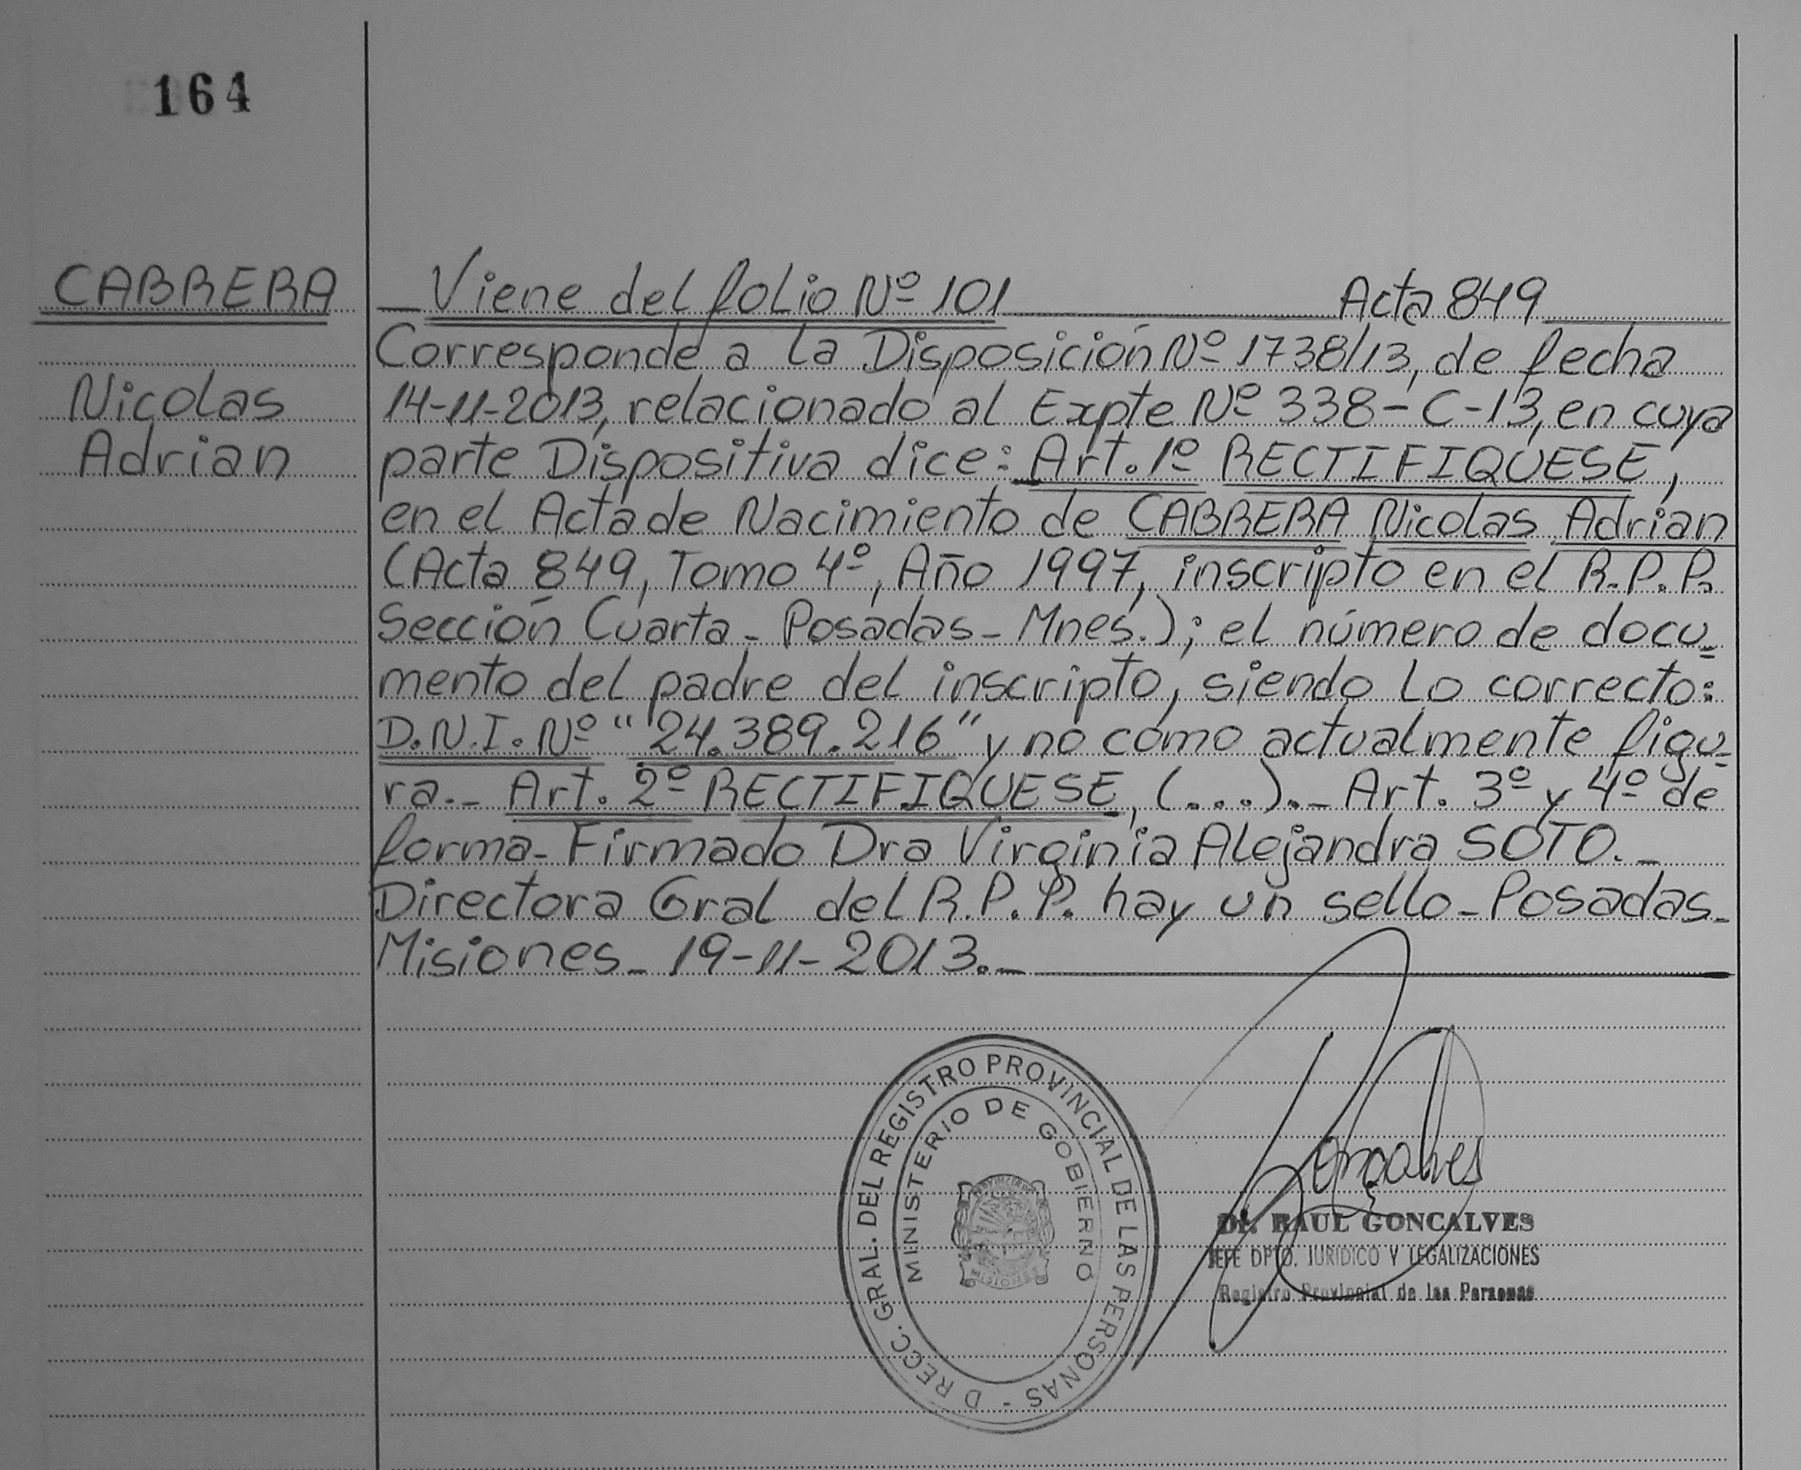 164
CABRERA
Nicolas
Adrian
_ Viene del folio Nº 101 Acta 849
Corresponde a la Disposición Nº 1738/13, de fecha
14-11-2013, relacionado al Expte Nº 338-C-13, en cuya
parte Dispositiva dice: Art. 1º RECTIFIQUESE,
en el Acta de Nacimiento de CABRERA Nicolas Adrian
(Acta 849, Tomo 4º, Año 1997, inscripto en el R.P.P.
Sección Cuarta - Posadas - Mnes.); el número de docu-
mento del padre del inscripto, siendo lo correcto:
D.N.I. Nº "24.389.216" y no cómo actualmente figu-
ra.- Art. 2º RECTIFIQUESE, (...).- Art. 3º y 4º de
forma- Firmado Dra Virginia Alejandra SOTO.-
Directora Gral del R.P.P. hay un sello - Posadas-
Misiones - 19-11-2013.-
D RECC. GRAL. DEL REGISTRO PROVINCIAL DE LAS PERSONAS -
MINISTERIO DE GOBIERNO
MISIONES
Gonçalves
Dr. RAUL GONCALVES
JEFE DPTO. JURIDICO Y LEGALIZACIONES
Registro Provincial de las Personas